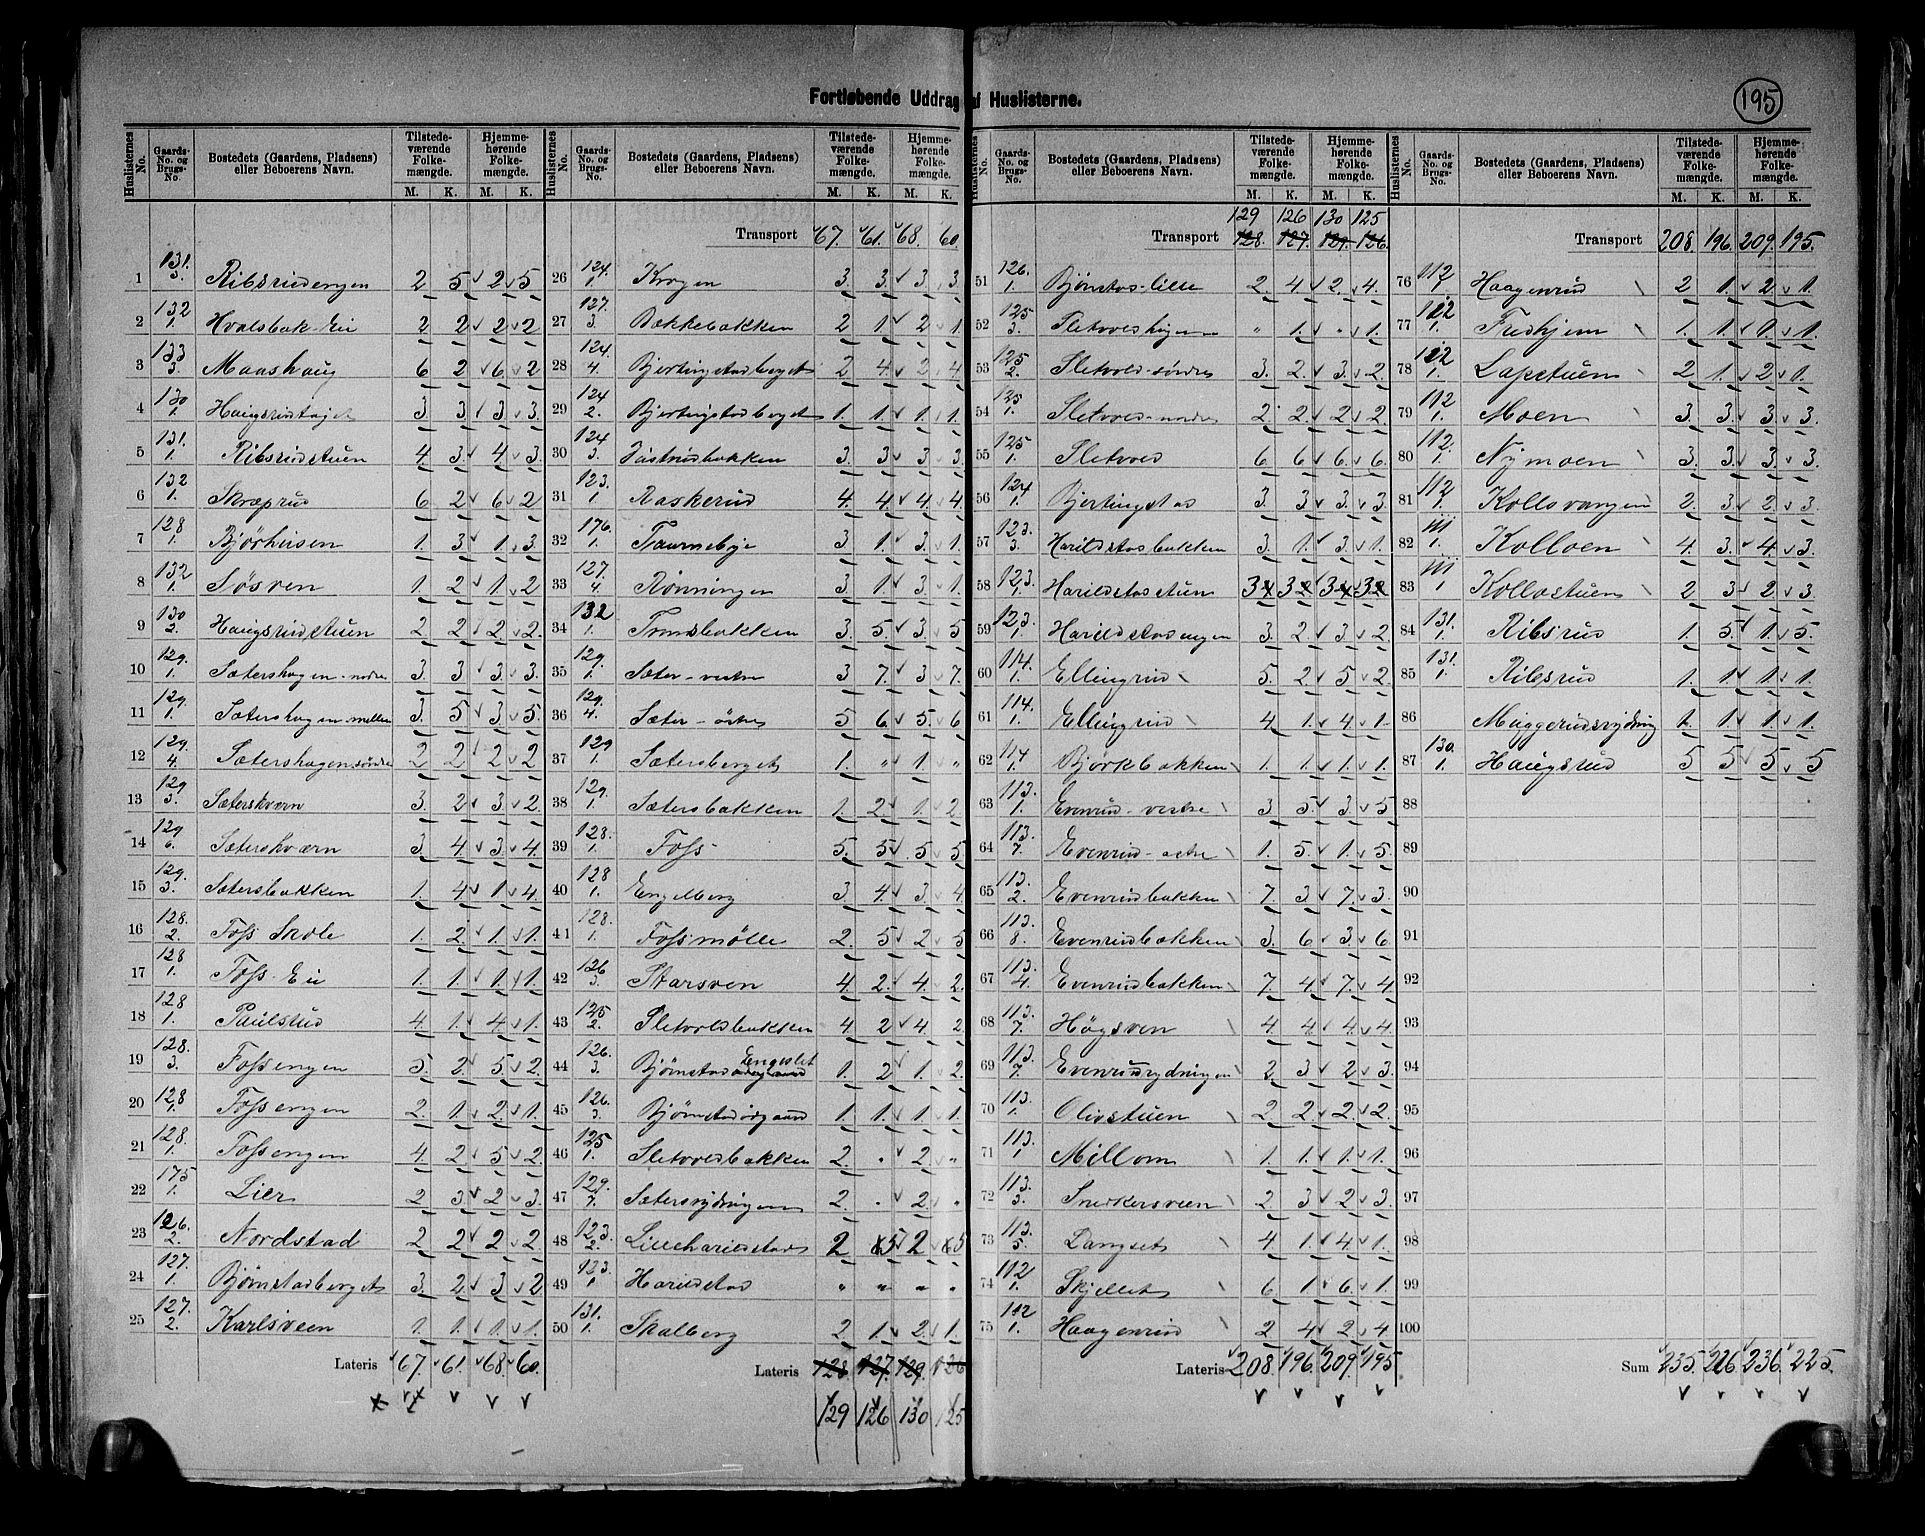 Fortløbende Uddrag af Huslisterne.
195
Huslisternes No. Gaards-No. og Brugs-No. Bostedets (Gaardens, Pladsens) eller Beboerens Navn. Tilstedeværende Folkemængde. M. K. Hjemmehørende Folkemængde. M. K.
1 131. 3. Ribsrudengen 2 5 2 5
2 132 1. Hvalsbak-Eie 2 2 2 2
3 133 3. Maashaug 6 2 6 2
4 130 1. 3 3 3 3.
5 131. 1. Ribsrudstuen 4 3. 4 3.
6 132 1. Skræprud 6 2 6 2
7 128 1. Bjørhusen 1. 3 1. 3.
8 132 1. Søsven 1. 2 1. 2
9 130 2. Haugsrudstuen 2. 2 2. 2.
10 129. 1. Sætershagen-nordre 3. 3 3. 3.
11 129. 1. Sætershagen-mellem 3. 5 3. 5.
12 129. 4. Sætershagen søndre 2 2 2 2
13 129 3. Sæterskværn 3. 2 3. 2.
14 129 6. Sæterskværn 3 4. 3 4.
15 129. 3. Sætersbakken 1. 4 1. 4.
16 128. 2. Foss Skole 1. 2. 1. 1.
17 128 1. Foss-Eie 1. 1. 1. 1.
18 128 1. Paulstud 4. 1. 4. 1.
19 128. 3. Fossengen 5. 2. 5 2.
20 128 1. Fossengen 2. 1. 2. 1.
21 128. 1. Fossengen 4. 2. 5 2.
22 175 1. Lier 2 3. 2 3.
23 126. 2. Nordstad 2 2 2 2
24 127. 1. Bjørnstadberget 3. 2. 3 2
25 127. 2. Karlsveen 1. 1. 1. 1.
Lateris 67. 61. 68. 60.
Transport 67. 61. 68. 60.
26 124. 1. Krogen 3. 3. 3. 3
27 127. 3. Bækkebakken 2 1. 2 1.
28 124. 4. Bjertingstadberget 2 4. 2 4
29 124 2. Bjertingstadberget 1. 1. 1. 1.
30 124 3. Jústrudbakken 3. 3. 3. 3.
31 123. 1. Raskerud 4. 4. 4. 4
32 176. 1. Taurnebye 3 1. 3. 1.
33 127. 4. Rønningen 3 1. 3. 1.
34 132 1. 3. 5. 3. 5
35 129. 1. Sæter-vestre 3 7. 3 7.
36 129. 4. Sæter-østre 5 6 5. 6
37 129 1. Sætersberget 1. " 1. "
38 129. 1. Sætersbakken 1. 2 1. 2
39 128. 1. Foss 5. 5 5 5
40 128 1. Engelberg 3 4. 3. 4
41 128. 1. Fossmølle 2. 5 2 5
42 126 3. Starsven 4. 2. 4. 2.
43 125 2. Sletvoldbakken 4. 2 4. 2
44 126. 3. Bjørnstad Engeslet 1. 2 1. 2.
45 126. 3. Bjørnstadødegaard 1. 1. 1. 1.
46 125 1. Sletvoldbakken 2. " 2. "
47 129. 7. Sætersrydningen 2. " 2. "
48 123. 2. Lilleharildstad 2 5 2 5
49 123. 1. Harildstad " " " "
50 131. 1. Skalberg 2. 1. 2. 1
Lateris 128 127. 129. 126
129 126 130 125
129 126 130 125
Transport 128. 127. 129. 126.
51 126. 1. Bjønstad-lille 2. 4 2. 4.
52 125 3. Sletvoldshagen " 1. " 1.
53 125 2. Sletvold-søndre 3. 2. 3. 2.
54 125 1. Sletvold-nordre 2. 2. 2. 2.
55 125 1. Sletvold 6. 6. 6. 6.
56 124 1. Bjertingstad 3. 3 3. 3
57 123. 3. Harildstadbakken 3. 1. 3. 1.
58 123. 1. Harildstadstuen 3 3 3 3
59 123. 1. Harildstadengen 3. 2. 3 2.
60 114. 1. Ellingrud 5. 2 5 2.
61 114. 1. Ellingrud 4 1. 4 1.
62 114 1. Bjørkbakken 1. 1. 1. 1.
63 113. 1. Evenrud-vestre 3 5. 3 5
64 113. 7. Evenrud-østre 1. 5. 1. 5.
65 113. 2. Evenrudbakken 7. 3. 7. 3.
66 113. 8. Evenrudbakken 3. 6 3. 6.
67 113. 4. Evenrudbakken 7 4 7. 4
68 113. 7. Høgsven 4. 4 4. 4.
69 113. 7. Evenrudrydningen 2. 3 2 3.
70 113. 1. Olivstuen 2 2. 2. 2.
71 113. 1. Millom 1. 1. 1. 1.
72 113. 3. Snekkersveen 2 3 2 3.
73 113. 5. Langset 4. 1. 4 1.
74 112 1. Skjellet 6 1. 6. 1.
75 112 1. Haagenrud 2 4 2 4
Lateris 208. 196. 209. 195.
Transport 208. 196. 209. 195.
76 112 1. Haagenrud 2 1. 2 1.
77 112 1. Fredhjem 1. 1. 1. 1.
78 112 1. Lapstuen 2 1. 2 1.
79 112 1. Moen 3. 3. 3. 3.
80 112. 1. Nymoen 3. 3. 3. 3.
81 112. 1. Kollsvangen 2. 3. 2. 3.
82 111. 1. Kolloen 4. 3. 4. 3.
83 111 1 Kollostuen 2 3. 2 3.
84 131. 1. Ribsrud 1. 5. 1. 5.
85 131. 1. Ribsrud 1. 1. 1. 1.
86 Muggerudsrydning 1. 1. 1. 1.
87 130. 1. Haugsrud 5 5 5 5
88
89
90
91
92
93
94
95
96
97
98
99
100
Sum 235. 226. 236. 225.